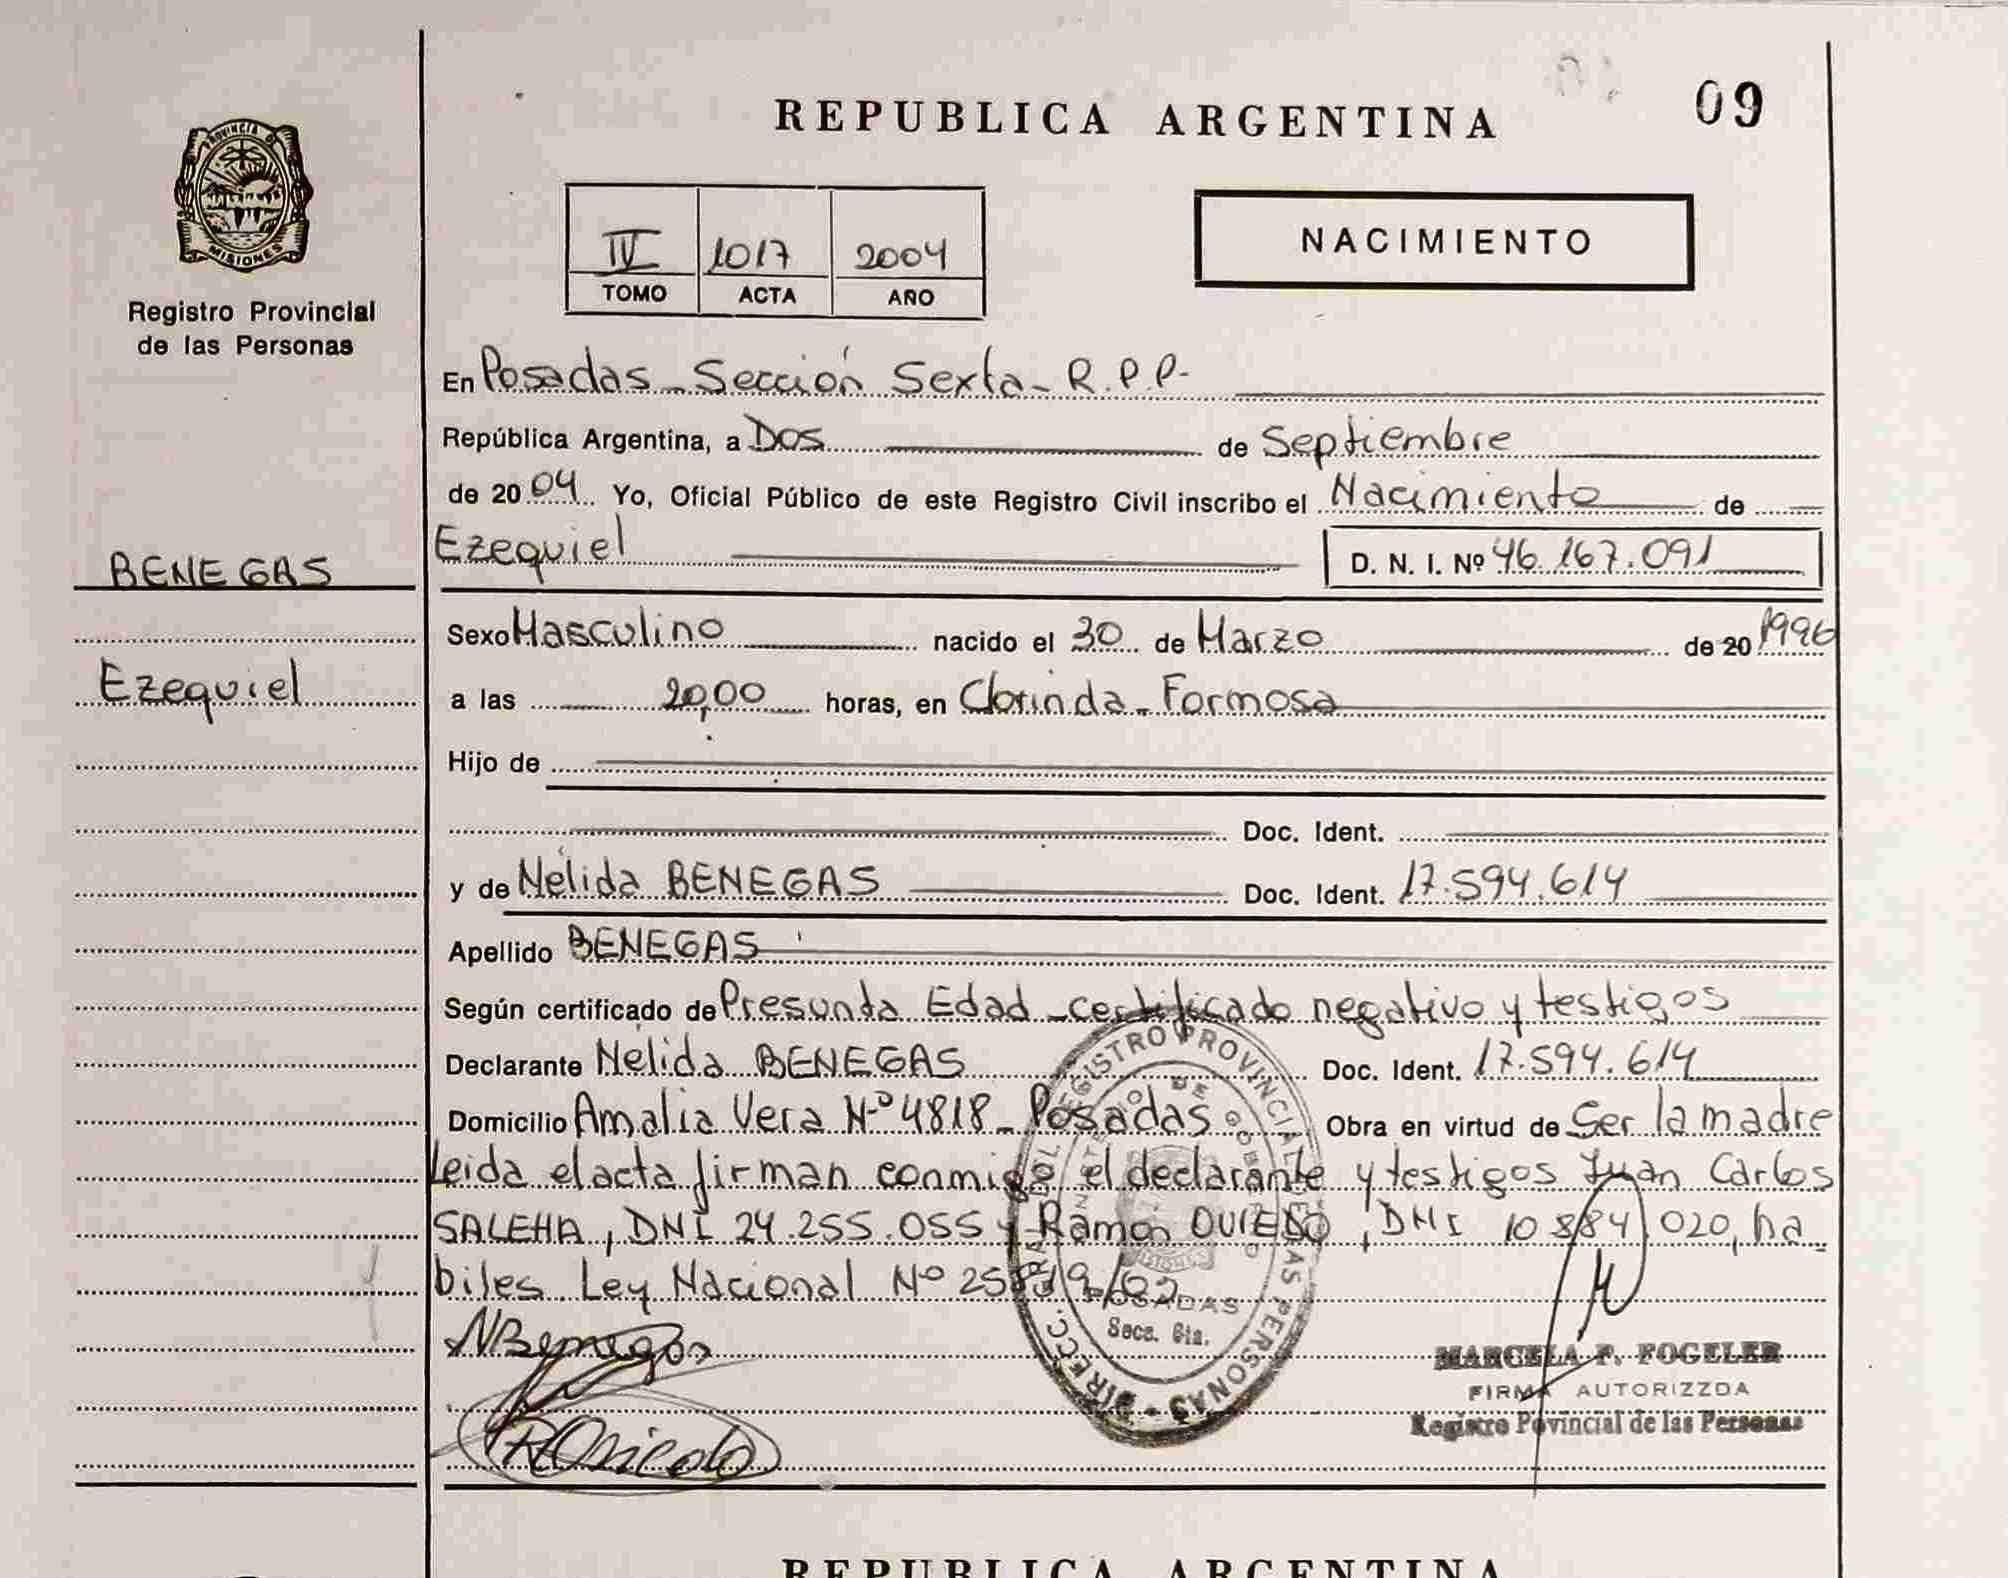 REPUBLICA ARGENTINA
09
PROVINCIA D
MISIONES
Registro Provincial
de las Personas
IV 1017 2004
TOMO ACTA AÑO
NACIMIENTO
En Posadas - Sección Sexta - R.P.P-
República Argentina, a Dos de Septiembre
de 20 04 Yo, Oficial Público de este Registro Civil inscribo el Nacimiento de
BENEGAS
Ezequiel D. N. I. Nº 46.167.091
Sexo Masculino nacido el 30 de Marzo de 20 1996
Ezequiel
a las 20,00 horas, en Clorinda - Formosa
Hijo de
Doc. Ident.
y de Nélida BENEGAS Doc. Ident. 17.594.614
Apellido BENEGAS
Según certificado de Presunta Edad - certificado negativo y testigos
Declarante Nelida BENEGAS Doc. Ident. 17.594.614
Domicilio Amalia Vera N-º 4818 - Posadas Obra en virtud de Ser la madre
Leida el acta firman conmigo el declarante y testigos Juan Carlos
SALEHA, DNI 24.255.055 y Ramon OVIEDO, DNI 10 884 020, ha-
biles Ley Nacional Nº
NBenegas
ROviedo
DIRECC. GRAL. REGISTRO PROVINCIAL DE LAS PERSONAS -
POSADAS
Secc. 6ta.
MARCELA P. FOGELER
FIRMA AUTORIZZDA
Registro Povincial de las Personas
REPUBLICA ARGENTINA